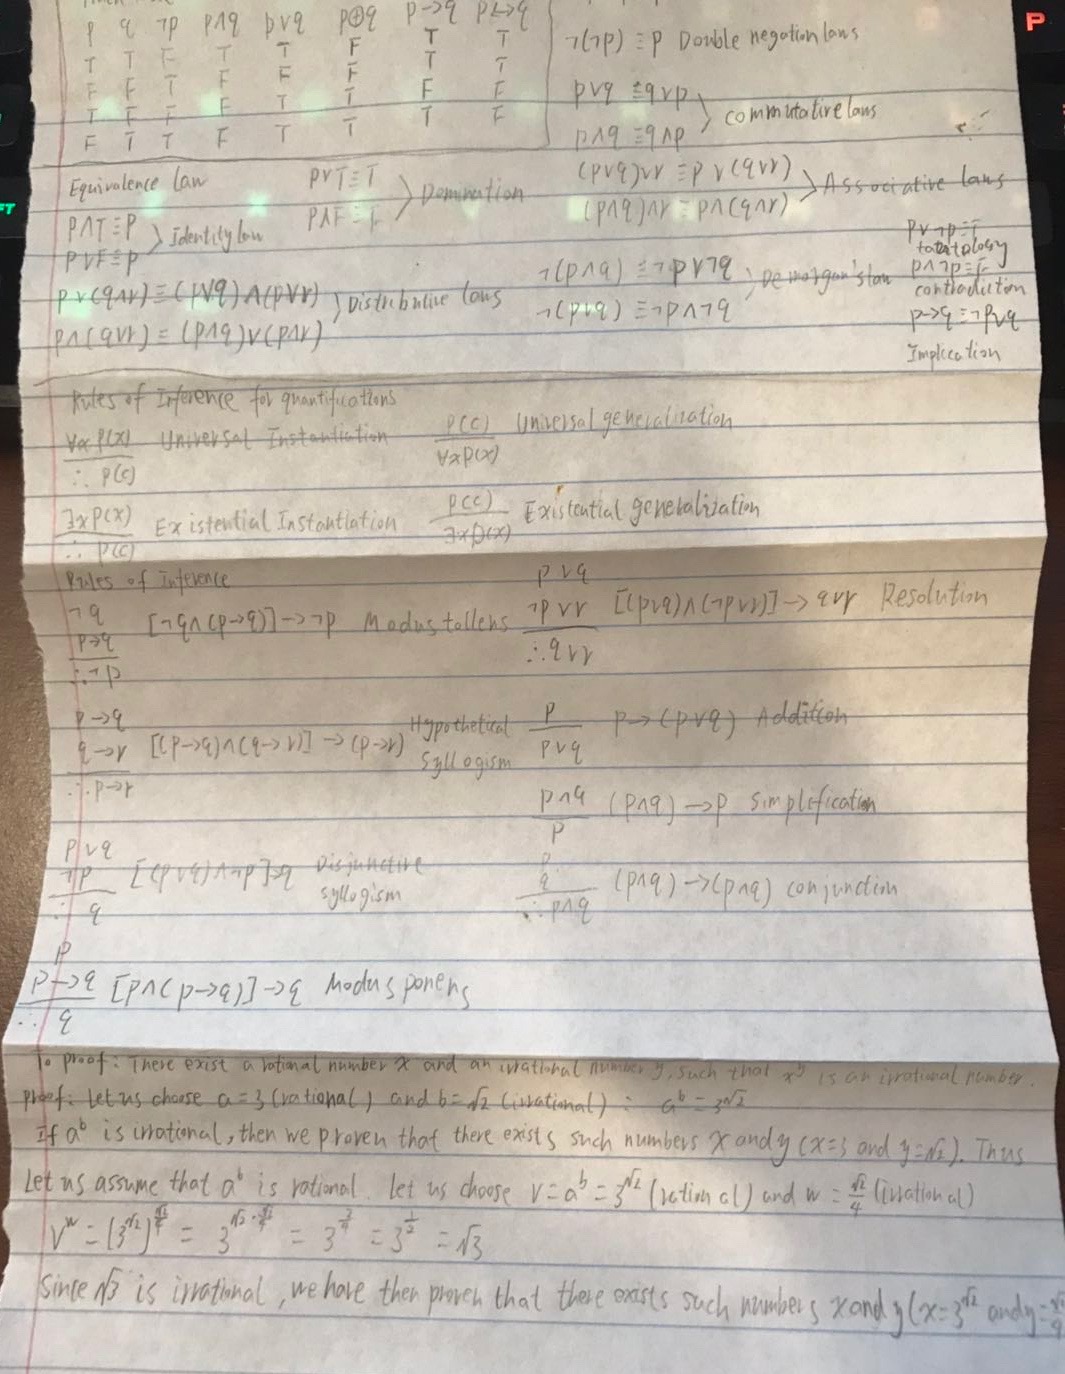 p q ¬p p∧q p∨q p⊕q p→q p↔q
T T F T T F T T
F F T F F F T T
T F F F T T F F
F T T F T T T F
¬(¬p) ≡ p Double negation laws
p∨q ≡ q∨p
p∧q ≡ q∧p
commutative laws
Equivalence law
p∨T ≡ T
p∧F ≡ F
Domination
(p∨q)∨r ≡ p∨(q∨r)
(p∧q)∧r ≡ p∧(q∧r)
Associative laws
p∧T ≡ p
p∨F ≡ p
Identity law
p∨(q∧r) ≡ (p∨q)∧(p∨r)
p∧(q∨r) ≡ (p∧q)∨(p∧r)
Distributive laws
¬(p∧q) ≡ ¬p∨¬q
¬(p∨q) ≡ ¬p∧¬q
De morgan's law
p∨¬p ≡ T
p∧¬p ≡ F
contradiction
p→q ≡ ¬p∨q
Implication
Rules of Inference for quantifications
∀x P(x) Universal Instantiation
∴ P(c)
P(c) Universal generalization
∀x P(x)
∃x P(x) Existential Instantiation
∴ P(c)
P(c) Existential generalization
∃x P(x)
Rules of Inference
¬q
p→q [¬q∧(p→q)]→¬p Modus tollens
∴¬p
p∨q
¬p∨r [(p∨q)∧(¬p∨r)]→q∨r Resolution
∴q∨r
p→q
q→r [(p→q)∧(q→r)]→(p→r) Hypothetical
syllogism
∴p→r
p p→(p∨q) Addition
p∨q
p∧q (p∧q)→p Simplification
p
p∨q
¬p [(p∨q)∧¬p]→q Disjunctive
syllogism
∴ q
p
q (p∧q)→(p∧q) conjunction
∴p∧q
p
p→q [p∧(p→q)]→q Modus ponens
∴ q
To proof: There exist a rational number x and an irrational number y, such that x^y is an irrational number.
proof: Let us choose a=3 (rational) and b=√2 (irrational): a^b = 3^√2
If a^b is irrational, then we proven that there exists such numbers x and y (x=3 and y=√2). Thus
Let us assume that a^b is rational. let us choose v = a^b = 3^√2 (rational) and w = √2/4 (irrational)
v^w = (3^√2)^√2/4 = 3^√2·√2/4 = 3^2/4 = 3^1/2 = √3
Since √3 is irrational, we have then proven that there exists such numbers x and y (x=3^√2 and y=